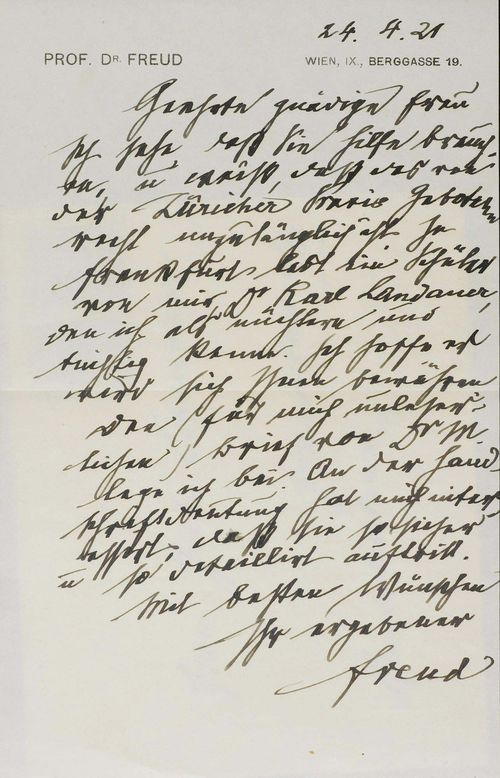 24. 4. 21
PROF. DR. FREUD WIEN, IX., BERGGASSE 19.
Geehrte gnädige Frau
Ich sehe daß Sie Hilfe brauch-
en, u weiß, daß das von
der Züricher Praxis Gebotene
recht unzulänglich ist. In
Frankfurt lebt ein Schüler
von mir Dr Karl Landauer,
den ich als nüchtern und
tüchtig kenne. Ich hoffe er
wird sich Ihnen bewähren
Den (für mich unleser-
lichen) Brief von Dr M.
lege ich bei. An der Hand
schriftdeutung hat mich inter
essirt, daß sie so sicher
u so detaillirt auftritt.
Mit besten Wünschen
Ihr ergebener
Freud